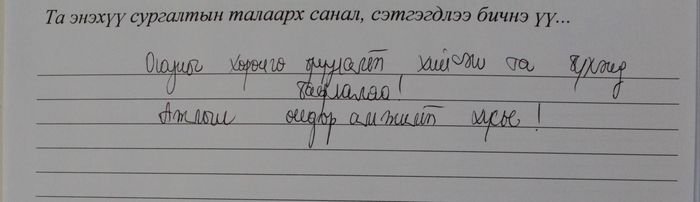 Та энэхүү сургалтын талаарх санал, сэтгэгдлээ бичнэ үү...
хөрөнгө хийсэн та бүхэнд
баярлалаа!
Ажлын өндөр амжилт хүсье!